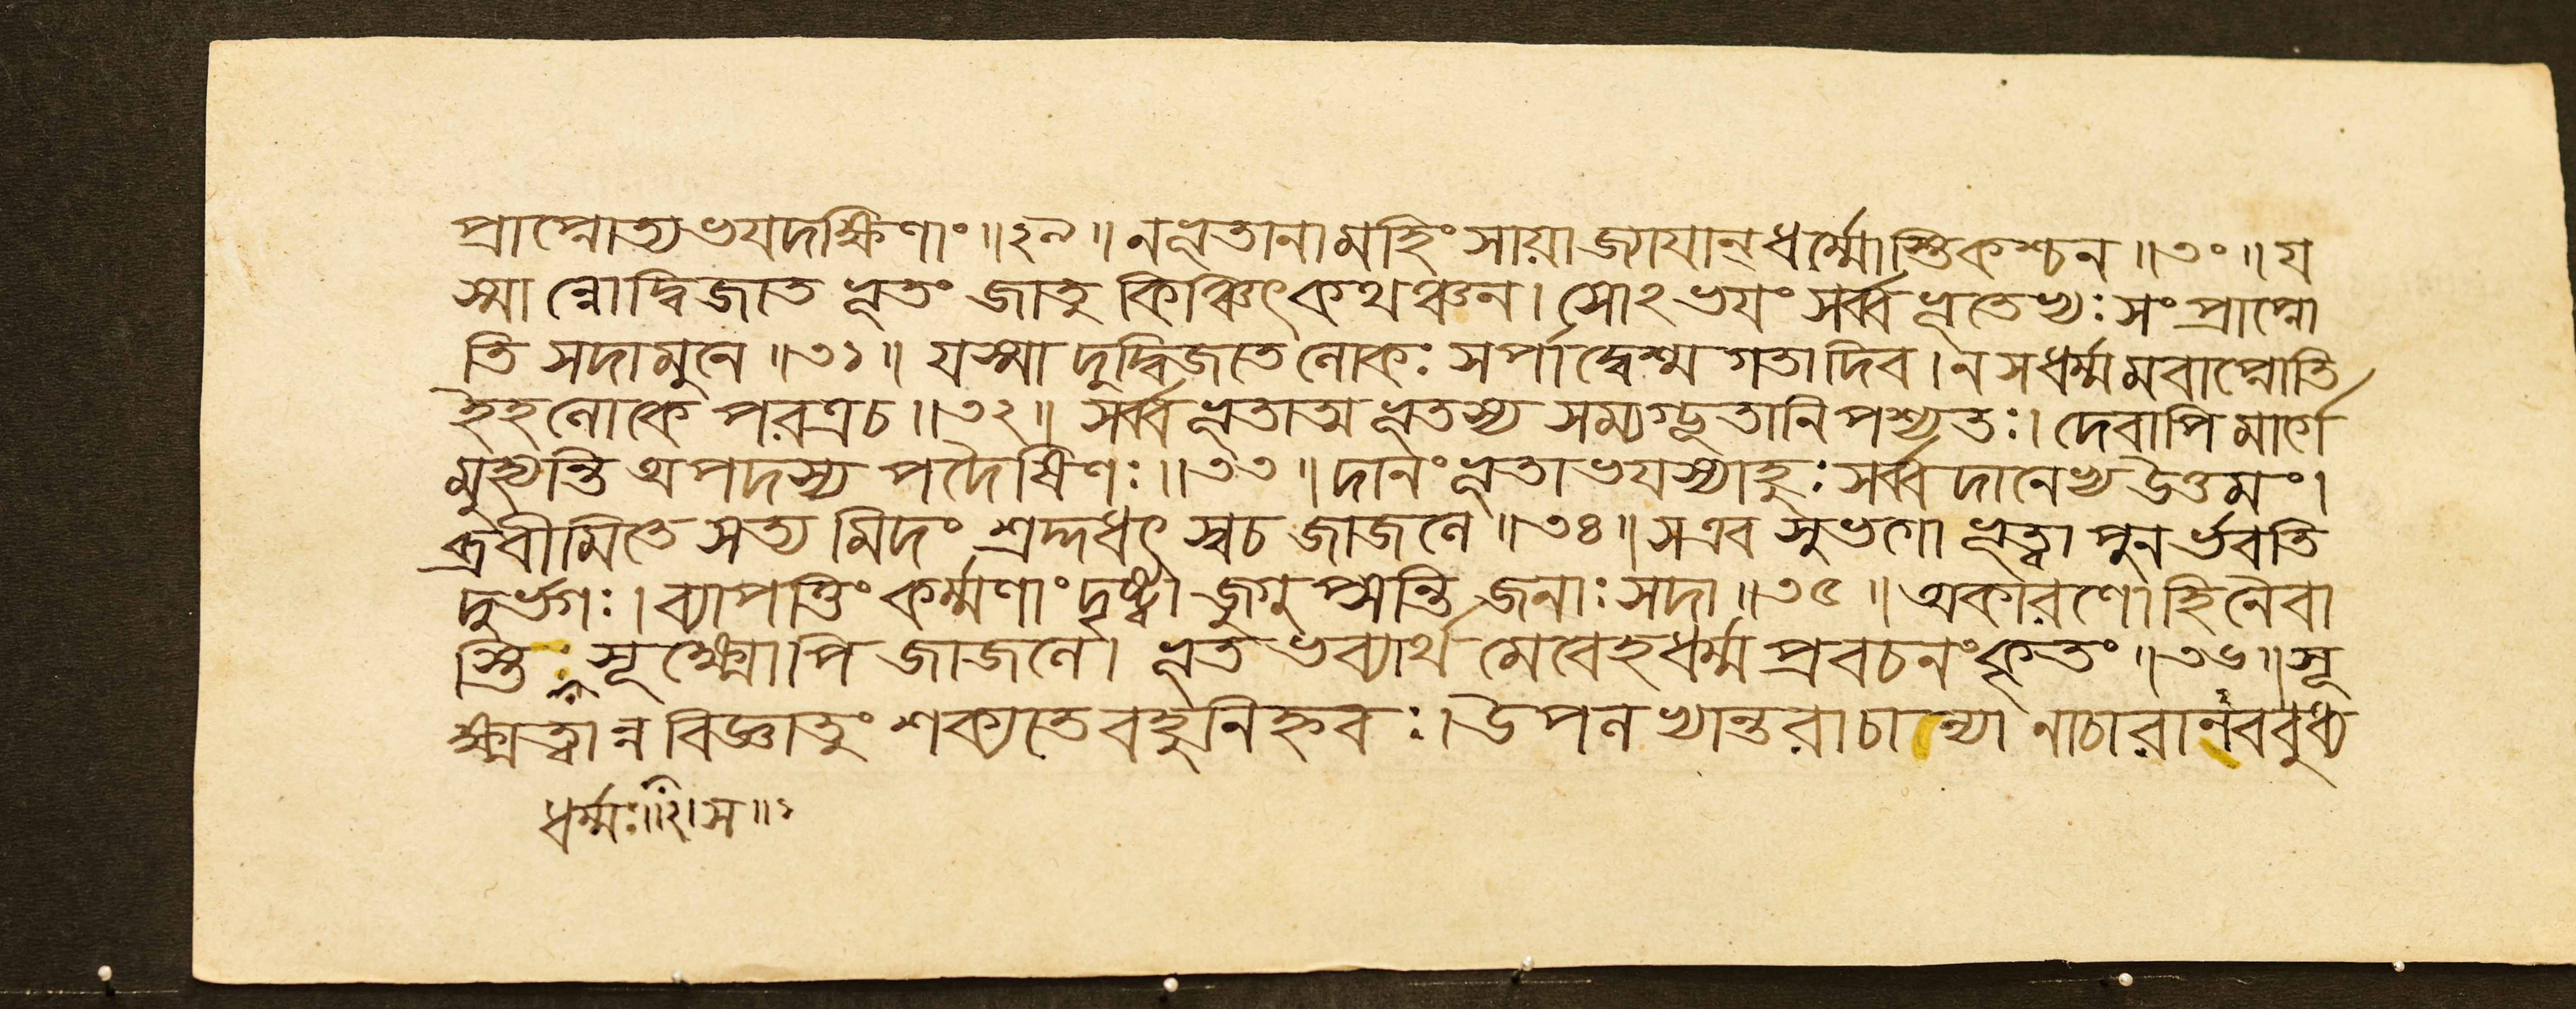 প্রাপ্নোত্যভযদক্ষিণাং॥২৯॥ নভূতানামহিংসায়া জ্যাযান্ধর্ম্মোস্তিকশ্চন॥৩০॥ য
স্মা ন্নোদ্বিজাত ভূতং জাতু কিঞ্চিৎকথঞ্চন। সোঽভযং সর্ব্ব ভূতেভ্যঃ সংপ্রাপ্নো
তি সদামুনে॥৩১॥ যস্মা দুদ্বিজতে লোকঃ সর্পাদ্বেশ্ম গতাদিব। ন সধর্ম্মমবাপ্নোতি
ইহলোকে পরত্রচ॥৩২॥ সর্ব্ব ভূতাত্ম ভূতস্য সম্যগ্ভূতানি পশ্যতঃ। দেবাপি মার্গে
মুহ্যন্তি অপদস্য পদৈষিণঃ॥৩৩॥ দানং ভূতাভযস্যাহুঃ সর্ব্ব দানেভ্য উত্তমং।
ব্রবীমিতে সত্য মিদং শ্রদ্দধৎ স্বচ জাজলে॥৩৪॥ সএব সুভগো ভূত্বা পুনর্ভবতি
দুর্ভগঃ। ব্যাপত্তিং কর্ম্মণাং দৃষ্ট্বা জুগুপ্সন্তি জনাঃ সদা॥৩৫॥ অকারণো হি নৈবা
স্তি সূক্ষ্মোপি জাজলে। ভূত ভব্যার্থ মেবেহধর্ম্ম প্রবচনং কৃতং॥৩৬॥ সূ
ক্ষ্মত্বান্ন বিজ্ঞাতুং শক্যতে বহুনিহ্নবঃ। উপলভ্যান্তরাচান্যা নাচারানববুধ্য
ধর্ম্মঃ॥২।স॥